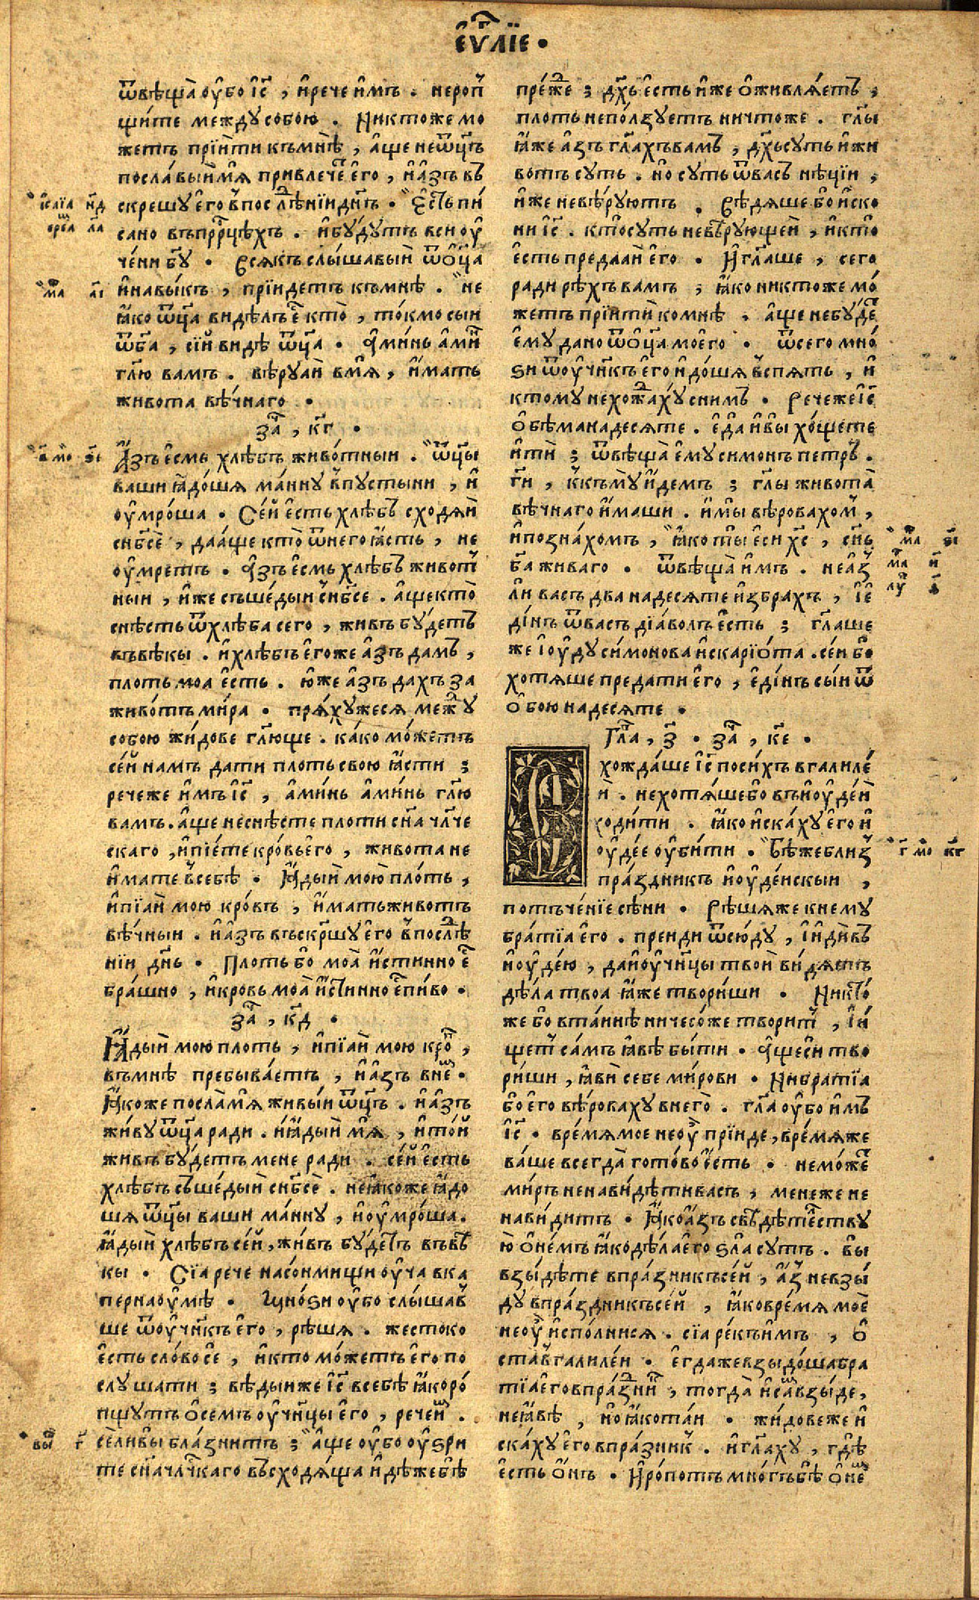 Є҆ѵⷢ҇лїе •
ѿвѣща̀ ᲂу҆́бо і҆с҃ , и҆рече и҆мъ . неропⷮ
щи́те междꙋ собою . Никтоже мо
жетъ прїи́ти къмнѣ̀ , а҆ще неѿц҃ъ
посла́выймѧ̀ привлече́тъ є҆го̀ , и҆а҆́зъ въ
скрешꙋ є҆го̀ в̾послѣⷣнїи дн҃ь • Єⷭ҇ть пи
Исаїа н҃д
сано въпрⷪ҇рцѣхъ . и҆бꙋ́дꙋтъ вси ᲂу҆
іерем ла
че́ни бг҃ꙋ • Всѧкъ слы́шавый ѿѻ҆ц҃а
и҆навы́къ , прїидетъ къмнѣ̀ . не
маⷴ а҃і
ꙗ҆́ко ѿц҃а ви́дѣлъ є҆́сть кто̀ , то́кмо сыи
ѿбг҃а , се́й ви́дѣ ѿц҃а • А҆минь а҆ми́нь
гл҃ю вамъ . вѣ́рꙋай вмѧ̀ , и҆́мать
живота вѣ́чнаго •
заⷱ҇ , к҃г •
А҆́зъ є҆́смь хлѣ́бъ живо́тныи . ѿц҃ы
ваши ꙗ҆до́шѧ ма́ннꙋ в̾пꙋсты́ни , и҆
ᲂу҆мро́ша • Се́й є҆́сть хлѣ́бъ сходѧ́й
снб҃сѐ , дааще кто̀ ѿнего ꙗ҆́сть , не
ᲂу҆мретъ • А҆зъ є҆́смь хлѣ́бъ живоⷮ
ныи , и҆́же съше́дыи снб҃се . а҆ще кто̀
снѣ́сть ѿхлѣ́ба сего , живъ бꙋ́детъ
въвѣ́кы . и҆хлѣ́бъ є҆го́же а҆́зъ дамъ ,
пло́ть моа є҆́сть . ю҆́же а҆́зъ дахъ за
живо́тъ ми́ра • прѧ́хꙋжесѧ межⷣꙋ
собою жи́дове гл҃юще . ка́ко мо́жетъ
се́й намъ да́ти пло́ть свою ꙗ҆́сти ;
речеже и҆́мъ і҆с҃ , а҆ми́нь а҆ми́нь гл҃ю
вамъ . а҆́ще неснѣ́сте пло́ти сн҃а чл҃че
скаго , и҆пїе́те кро́вь є҆го̀ , живота не
и҆́мате в̾себѣ̀ • Ꙗ҆ды́й мою̀ пло́ть ,
и҆пїа́й мою кро́въ , и҆́мать живо́тъ
вѣ́чныи . и҆а҆́зъ въскрⷲꙋ є҆го̀ в̾послѣⷣ
нїи дн҃ь • Пло́ть бо моа̀ и҆́стинно є҆ⷭ҇
бра́шно , и҆кровь моа̀ и҆́стинно є҆ⷭ҇ пи́во •
заⷱ҇ , к҃д •
Ꙗ҆ды́й мою пло́ть , и҆пїа́й мою кроⷡ҇ ,
въмнѣ̀ пребыва́етъ , и҆а҆́зъ вне́мъ •
Ꙗ҆́коже посла́мѧ живы́и ѿц҃ъ . и҆а҆́зъ
живꙋ̀ ѿц҃а ради . и҆ꙗ҆ды́й мѧ̀ , и҆то́й
живъ бꙋ́детъ мене ради . се́й є҆́сть
хлѣ́бъ съше́дый снб҃се . неꙗ҆́коже ꙗ҆до
шѧ ѿц҃ы ваши ма́ннꙋ , и҆ᲂу҆мро́ша .
ꙗ҆ды́й хлѣ́бъ се́й , живъ бꙋ́детъ въвѣ
кы • Сїа рече насо́нмищи ᲂу҆ча вка
пернаꙋ́мѣ • Мно́ѕи ᲂу҆́бо слы́шав̾
ше ѿᲂу҆чн҃къ є҆го̀ , рѣ́шѧ . жестоко
є҆́сть сло́во сѐ , и҆кто мо́жетъ є҆го по
слꙋ́шати ; вѣ́дыиже і҆с҃ всебѣ̀ ꙗ҆́ко ро́
пщꙋтъ ѻ҆семъ ᲂу҆чн҃цы є҆го , рече и҆́мъ .
се́ли вы бла́знитъ ; а҆́ще ᲂу҆́бо ᲂу҆́зри
выⷲ г҃
те сн҃а чл҃ческаго въсходѧ́ща и҆дѣ́же бѣ̀
пре́жⷣе ; дх҃ъ є҆́сть и҆́же ѻ҆живлѧ́етъ ,
пло́ть непо́лзꙋетъ ничтоже . гл҃ы
ꙗ҆́же а҆́зъ гл҃ахъ вамъ , дх҃ъ сꙋть и҆жи
вотъ сꙋть . но сꙋть ѿвасъ нѣ́цїи ,
и҆́же невѣ́рꙋютъ . Вѣ́дѧше бо и҆́ско
ни і҆с҃ . кто сꙋть невѣ́рꙋющеи , и҆кто
є҆́сть предаай є҆го • И҆гл҃аше , сего
ради рѣ́хъ вамъ , ꙗ҆́ко никтоже мо́
жетъ прїи́ти комнѣ̀ , а҆ще небꙋ́деⷮ
є҆мꙋ дано ѿѻ҆ц҃а моего • ѿсего мно́
ѕи ѿᲂу҆чн҃къ є҆го и҆до́шѧ вспѧть , и҆
ктомꙋ нехожⷣа́хꙋ снимъ • Речеже і҆с҃
ѻ҆бѣманадесѧте . є҆да и҆вы хо́щете
и҆ти́ ; ѿвѣща̀ є҆мꙋ симонъ петръ .
гⷭ҇и , ккъ́мꙋ и҆́демъ ; гл҃ы живота̀
вѣ́чнаго и҆́маши . и҆мы вѣ́ровахом̾ ,
и҆позна́хомъ , ꙗ҆́ко ты̀ є҆си хс҃ , сн҃ъ
маⷴ в҃і
бг҃а живаго . ѿвѣща̀ и҆мъ . не а҆зⸯ
маⷬ и҃
ли васъ два надесѧте и҆збрахъ , і҆є
лꙋⷦ ѳ҃
ди́нъ ѿвасъ дїа́волъ є҆́сть ; гл҃аше
же і҆ѹ́дꙋ си́монова и҆скарїо́та . се́и бо̀
хотѧше предати є҆го , є҆ди́нъ сы́и ѿ
ѻ҆боюнадесѧте •
Глаⷡ҇ , з҃ • заⷱ҇ , к҃е •
хожда́ше і҆с҃ по си́хъ вгалиле́
и҆ . нехотѧ́ше бо въиᲂу҆де́и
ходи́ти . ꙗ҆́ко и҆ска́хꙋ є҆го и҆
ᲂу҆де́е ᲂу҆би́ти • Бѣ́же близⸯ
г҃ мⷪ҇ к҃г
пра́здникъ и҆ᲂу҆де́искыи ,
потъче́нїе сѣ́ни • Рѣ́шѧже кнемꙋ
бра́тїа є҆го . преиди ѿсю́дꙋ , и҆и҆ди́ въ
и҆ᲂу҆де́ю , даи҆ᲂу҆чн҃цы твои̑ ви́дѧтъ
дѣ́ла твоа ꙗ҆́же твориши • Никто́
же бо вта́инѣ ничесо́же твори́тъ , и҆и҆
щетъ са́мъ ꙗ҆́вѣ бы́ти • А҆ще си тво
риши , ꙗ҆ви̑ себе ми́рови • Нибратїа
бо є҆го вѣ́ровахꙋ внего̀ . гл҃а ᲂу҆́бо и҆́мъ
і҆с҃ • вре́мѧ мое не ᲂу҆̀ прїиде , вре́мѧже
ва́ше всегда̀ гото́во є҆́сть • неможеⷮ
ми́ръ ненави́дѣти васъ , менеже не
нави́дитъ • Ꙗ҆́ко а҆́зъ свѣдѣ́телⷭ҇твꙋ
ю ѻ҆не́мъ ꙗ҆́ко дѣ́ла є҆го ѕла сꙋть . вы
взы́дѣте впра́зникъ се́й , а҆́зъ невзы́
дꙋ впра́здникъ се́й , ꙗ҆́ко вре́мѧ моѐ
не ᲂу҆̀ и҆спо́лнисѧ . сїа ре́къ и҆мъ , ѻ҆
ста̀ вгалиле́и • є҆гдаже взыдо́ша бра
тїа є҆го впра́зⷣникъ , тогда̀ и҆са́мъ взы́де ,
неꙗ҆́вѣ , но ꙗ҆́ко та́и • жи́довеже и҆
ска́хꙋ є҆го впра́зник̾ . и҆гл҃ахꙋ , гдѣ̀
є҆сть ѻ҆нъ • И҆ро́потъ мно́гъ бѣ̀ ѻ҆не́мъ